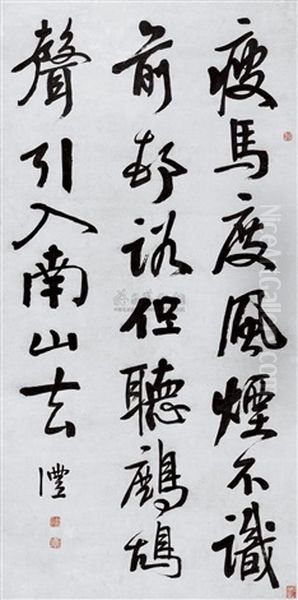 瘦馬度風煙不識
前邨路但聽鷓鴣
聲引入南山去
灃